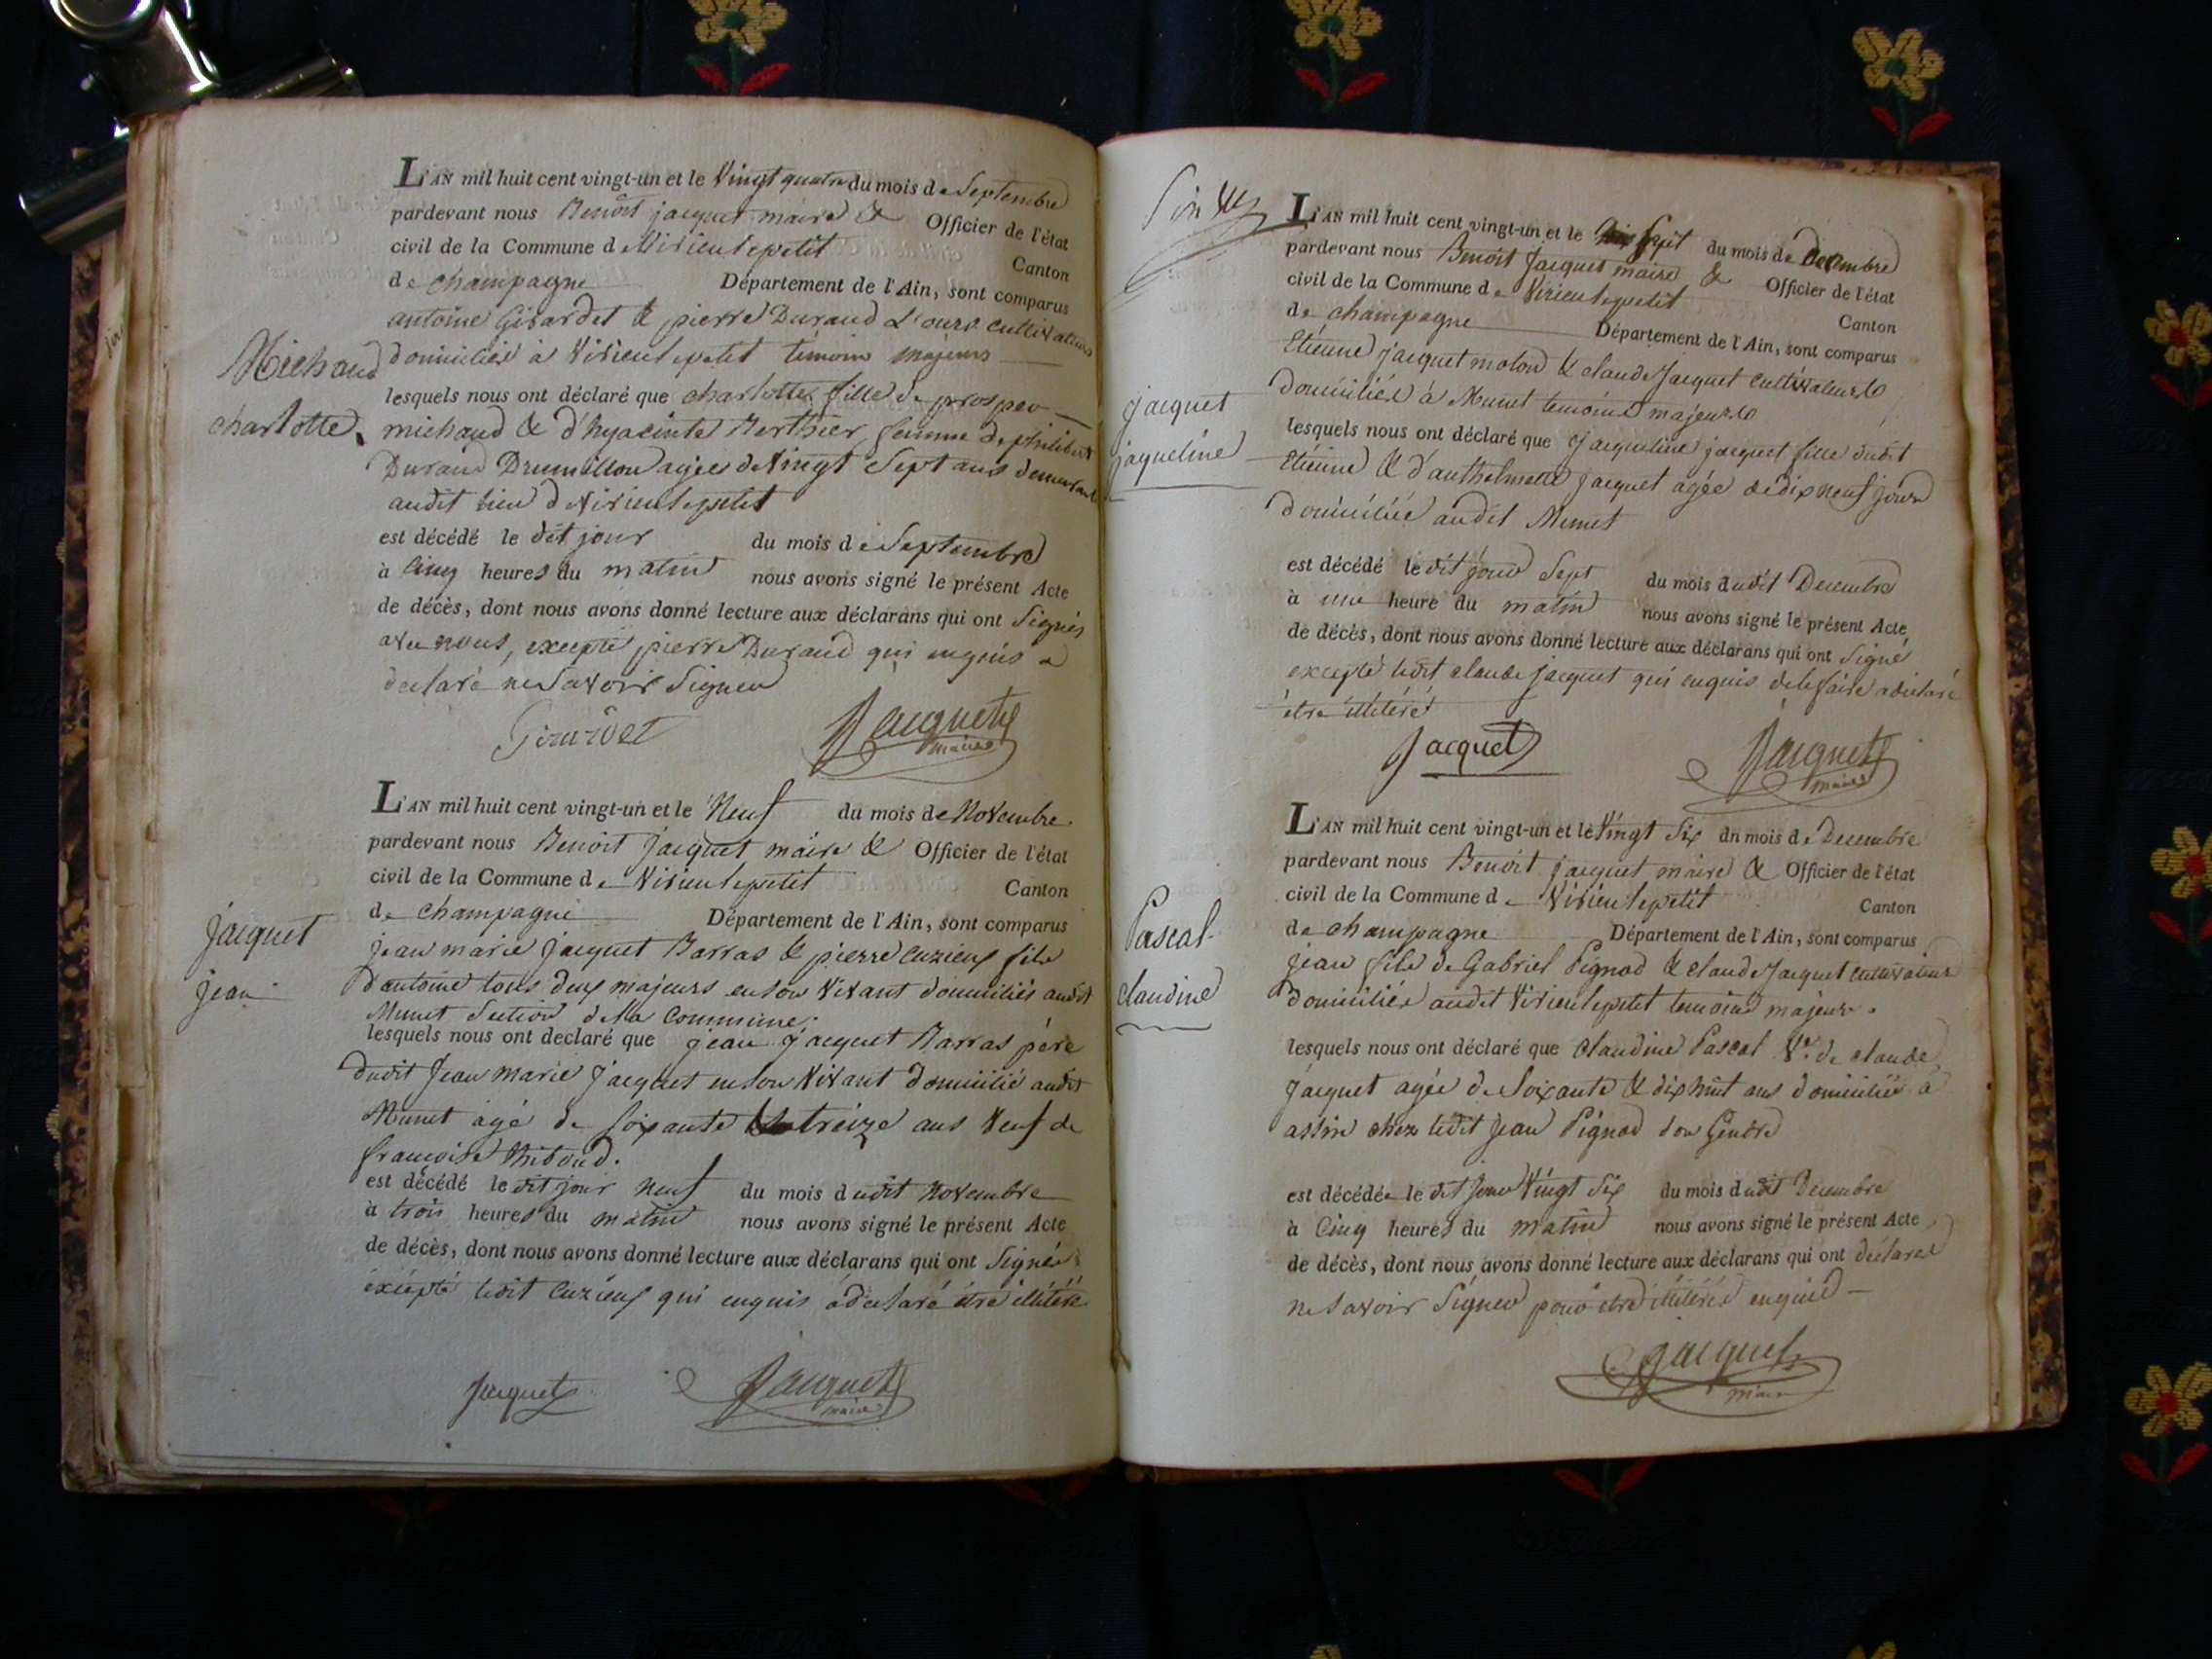 L'AN mil huit cent vingt-un et le Vingt quatre du mois de Septembre
pardevant nous Benoît jacquet maire & Officier de l'état
civil de la Commune de Virieulepetit Canton
de champagne Département de l'Ain, sont comparus
antoine Girardet & pierre Durand L'ours cultivateurs
domiciliés à Virieulepetit témoins majeurs
Michaud
charlotte
lesquels nous ont déclaré que charlotte fille de prosper
michaud & d'hyacinte Berthier, femme de philibert
Durand Drumillon agée de Vingt Sept ans demeurant
audit lieu de Virieulepetit
est décédé le dit jour du mois de Septembre
à Cinq heures du matin nous avons signé le présent Acte
de décès, dont nous avons donné lecture aux déclarans qui ont Signés
avec nous, excepté pierre Durand qui enquis a
declaré ne Savoir Signer
Girardet Jacquet
maire
L'AN mil huit cent vingt-un et le Neuf du mois de Novembre
pardevant nous Benoit jacquet maire & Officier de l'état
civil de la Commune de Virieulepetit Canton
de champagne Département de l'Ain, sont comparus
jacquet
jean
jean marie jacquet Barras & pierre cuzieux fils
d'antoine tous deux majeurs en son Vivant domiciliés audit
Munet Section de la Commune
lesquels nous ont declaré que jean jacquet Barras père
dudit Jean marie jacquet en son Vivant domicilié audit
Munet agé de soixante treize ans Veuf de
francoise
est décédé le dit jour neuf du mois dudit Novembre
à trois heures du matin nous avons signé le présent Acte
de décès, dont nous avons donné lecture aux déclarans qui ont Signés
excepté ledit Cuzieux qui enquis a declaré être illitéré
Jacquet Jacquet
maire
L'AN mil huit cent vingt-un et le Sept du mois de Decembre
pardevant nous Benoit Jacquet maire & Officier de l'état
civil de la Commune de Virieulepetit Canton
de champagne Département de l'Ain, sont comparus
Etienne jacquet molon & claude Jacquet cultivateurs
domiciliés à Munet temoins majeurs
jacquet
jaqueline
lesquels nous ont déclaré que jacqueline jacquet fille dudit
Etienne & d'anthelmette jacquet agée de dix neuf jours
domiciliée audit Munet
est décédé le dit jour Sept du mois dudit Decembre
à une heure du matin nous avons signé le présent Acte
de décès, dont nous avons donné lecture aux déclarans qui ont Signé
excepté ledit claude Jacquet qui enquis de le faire a déclaré
être illitéré
Jacquet Jacquet
maire
L'AN mil huit cent vingt-un et le Vingt Six du mois de Decembre
pardevant nous Benoit jacquet maire & Officier de l'état
civil de la Commune de Virieulepetit Canton
de champagne Département de l'Ain, sont comparus
Pascal
claudine
jean fils de Gabriel Pignod & claude Jacquet cultivateurs
domiciliés audit Virieulepetit temoins majeurs
lesquels nous ont déclaré que claudine Pascal Ve. de claude
Jacquet agée de Soixante & dix huit ans domiciliée à
assin chez ledit Jean Pignod son Gendre
est décédée le dit jour Vingt Six du mois dudit Decembre
à Cinq heures du matin nous avons signé le présent Acte
de décès, dont nous avons donné lecture aux déclarans qui ont déclaré
ne Savoir Signer pour être illitérés enquis
Jacquet
maire